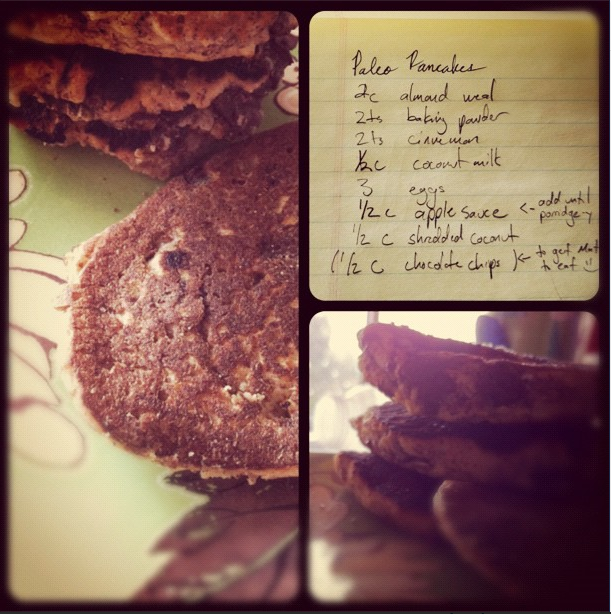 Paleo Pancakes
2c almond meal
2ts baking powder
2ts cinnemon
1/2c coconut milk
3 eggs
1/2 c apple sauce <- add until porridge-y
1/2 c shredded coconut
(1/2 c chocolate chips) <- to get Matt to eat :)